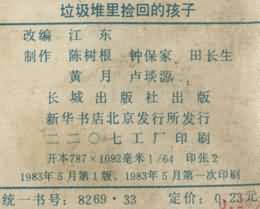 垃圾堆里捡回的孩子
改编 江东
制作 陈树根 钟保家 田长生
黄月 卢琰源
长城出版社出版
新华书店北京发行所发行
二二〇七工厂印刷
开本787×1092毫米1/64 印张2
1983年5月第1版、1983年5月第一次印刷
统一书号:8269·33 定价:0.23元